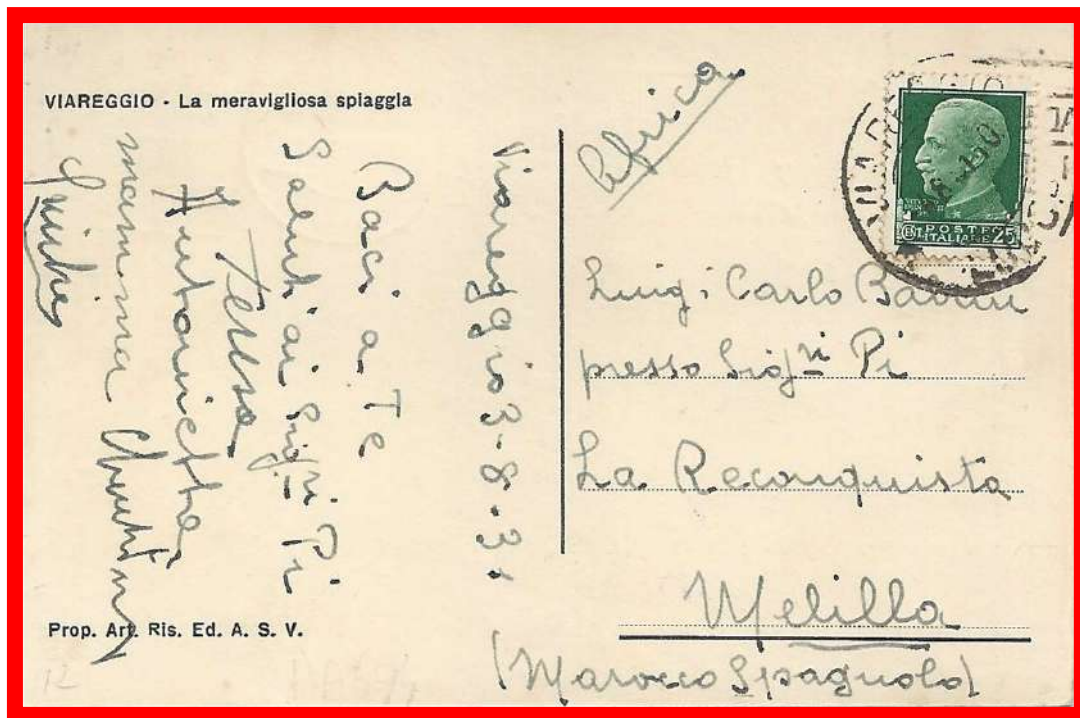 VIAREGGIO - La meravigliosa spiaggia
Viareggio 3-8-31
Baci a Te
Saluti ai Sigri Pi
Antonietta
mammina
Prop. Art. Ris. Ed. A. S. V.
Africa
POSTE
ITALIANE 25
Luigi Carlo
presso Sigri Pi
La Reconquista
Melilla
(Marocco Spagnolo)
12